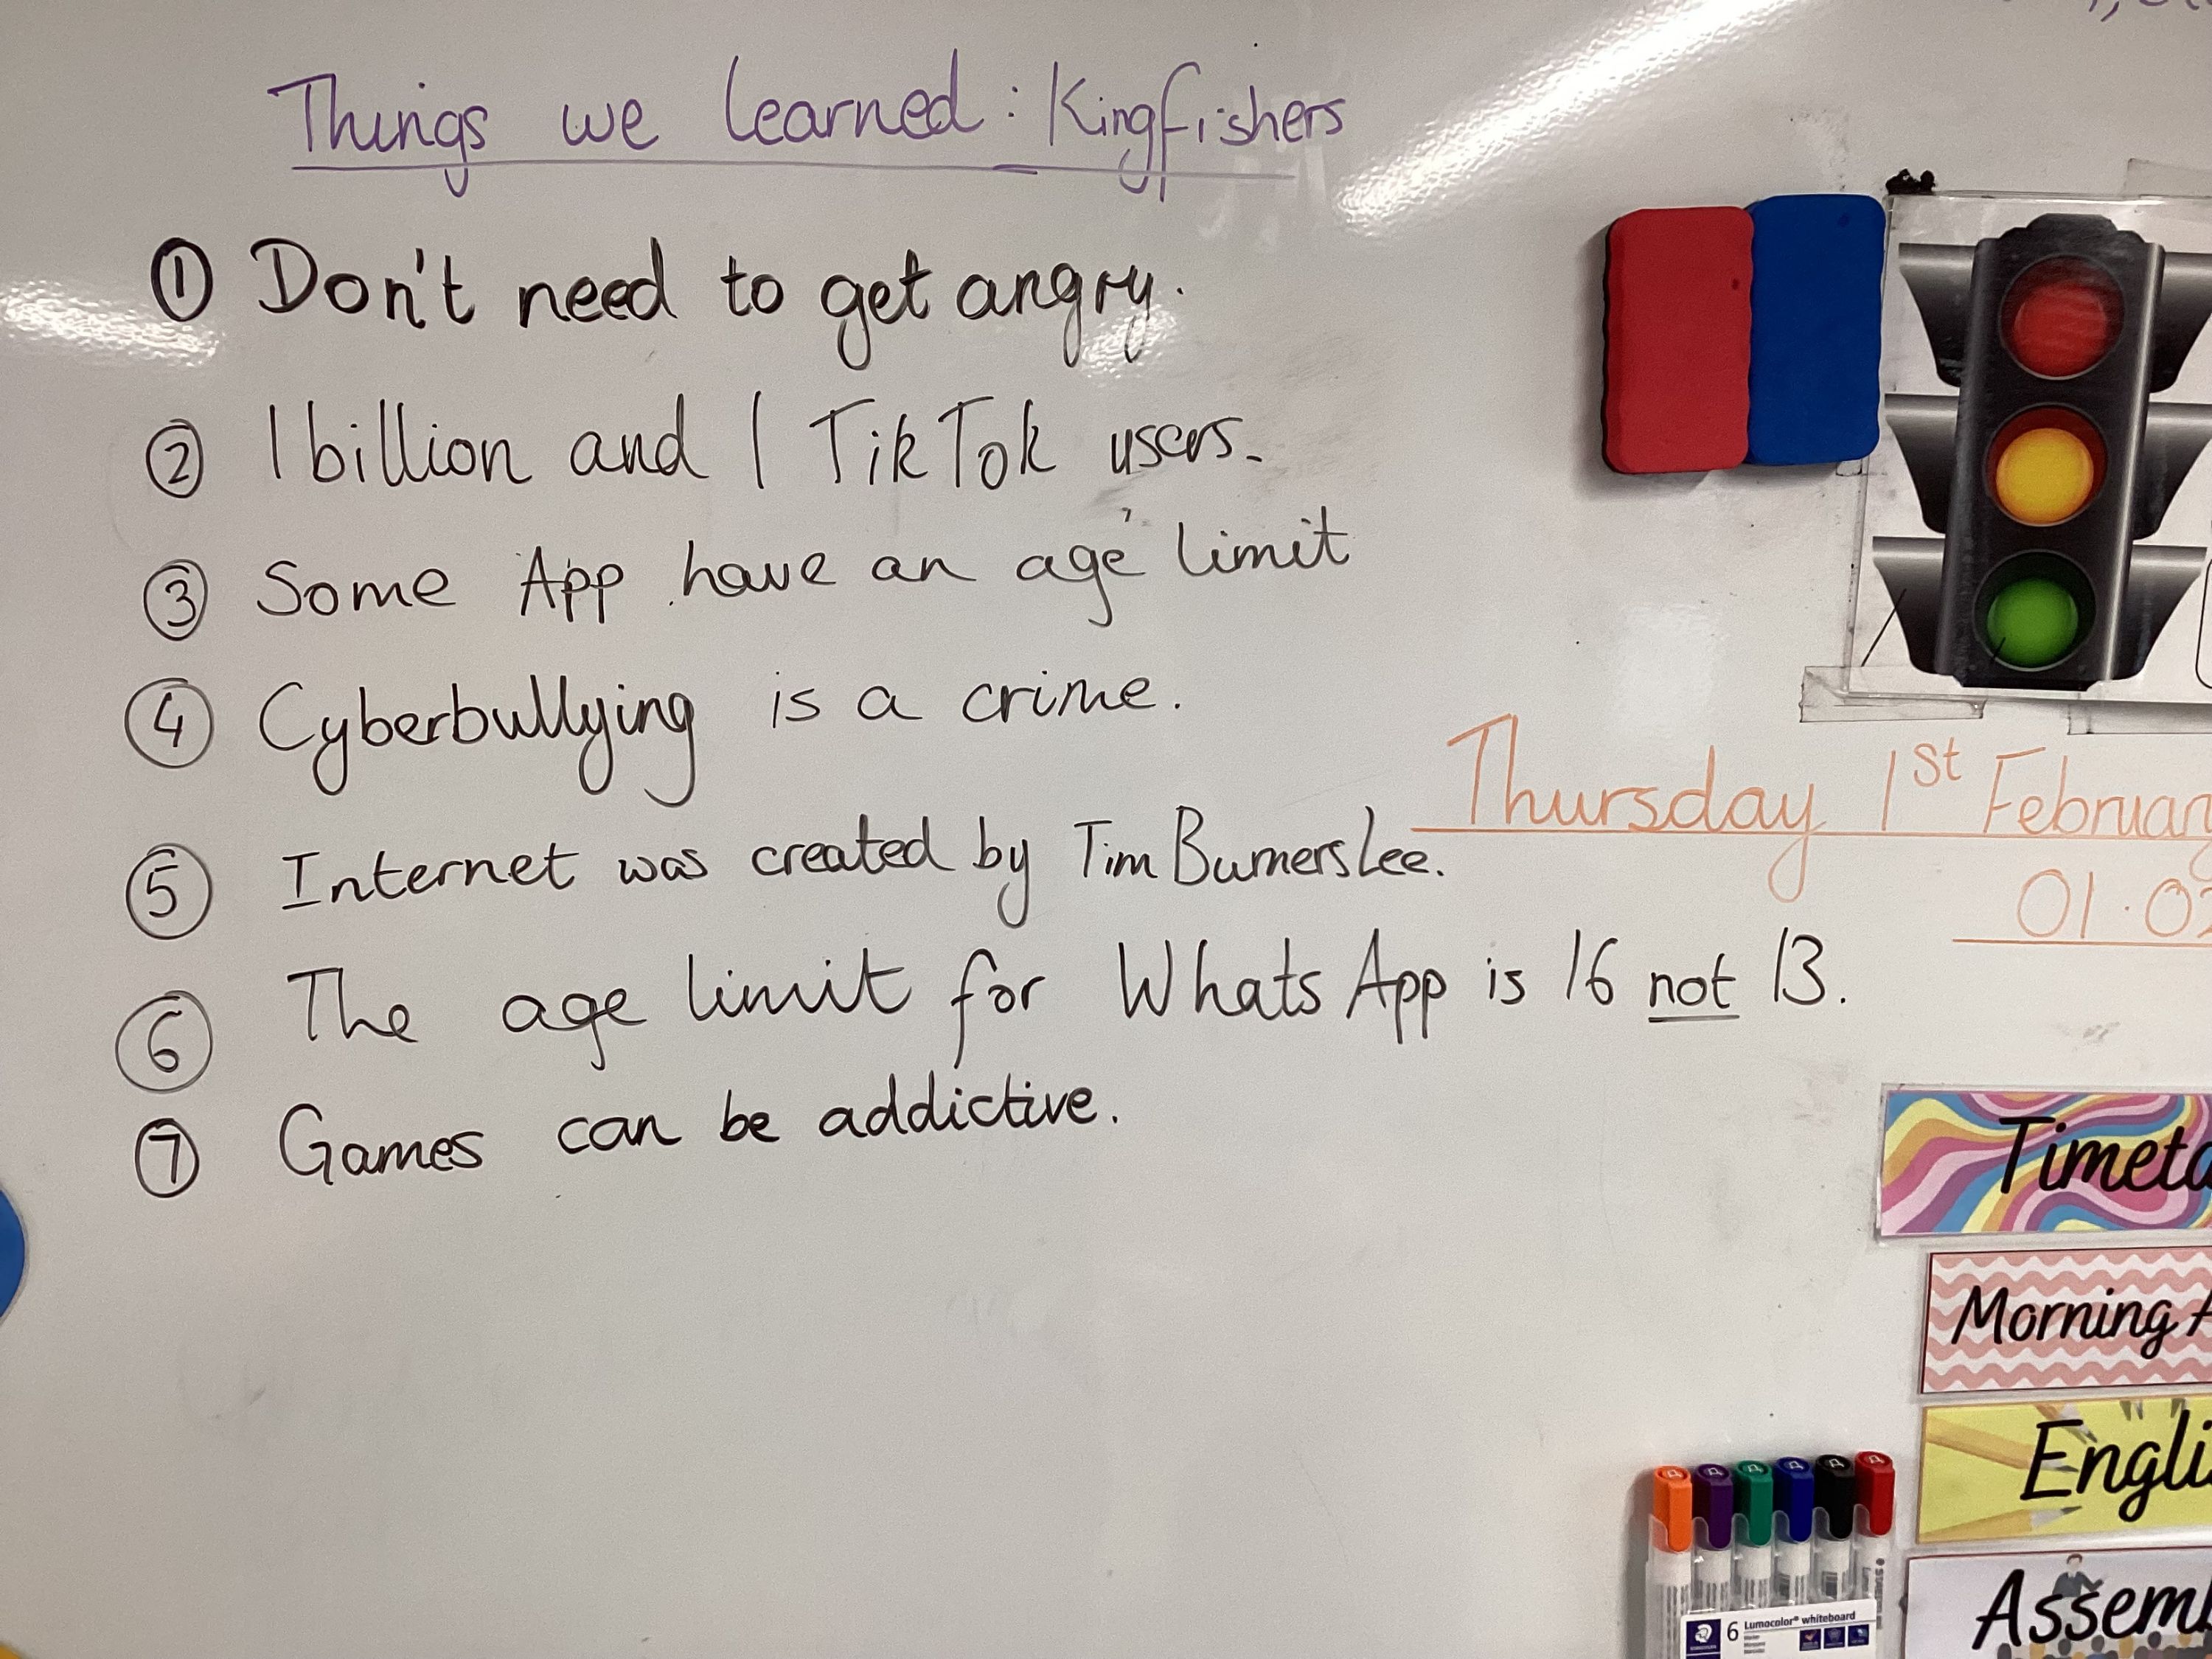 Things we learned: Kingfishers
① Don't need to get angry.
② 1 billion and 1 TikTok users.
③ Some App have an age limit
④ Cyberbullying is a crime.
Thursday 1st
⑤ Internet was created by Tim Burners Lee.
01.0
⑥ The age limit for WhatsApp is 16 not 13.
⑦ Games can be addictive.
Morning
6 Lumocolor® whiteboard